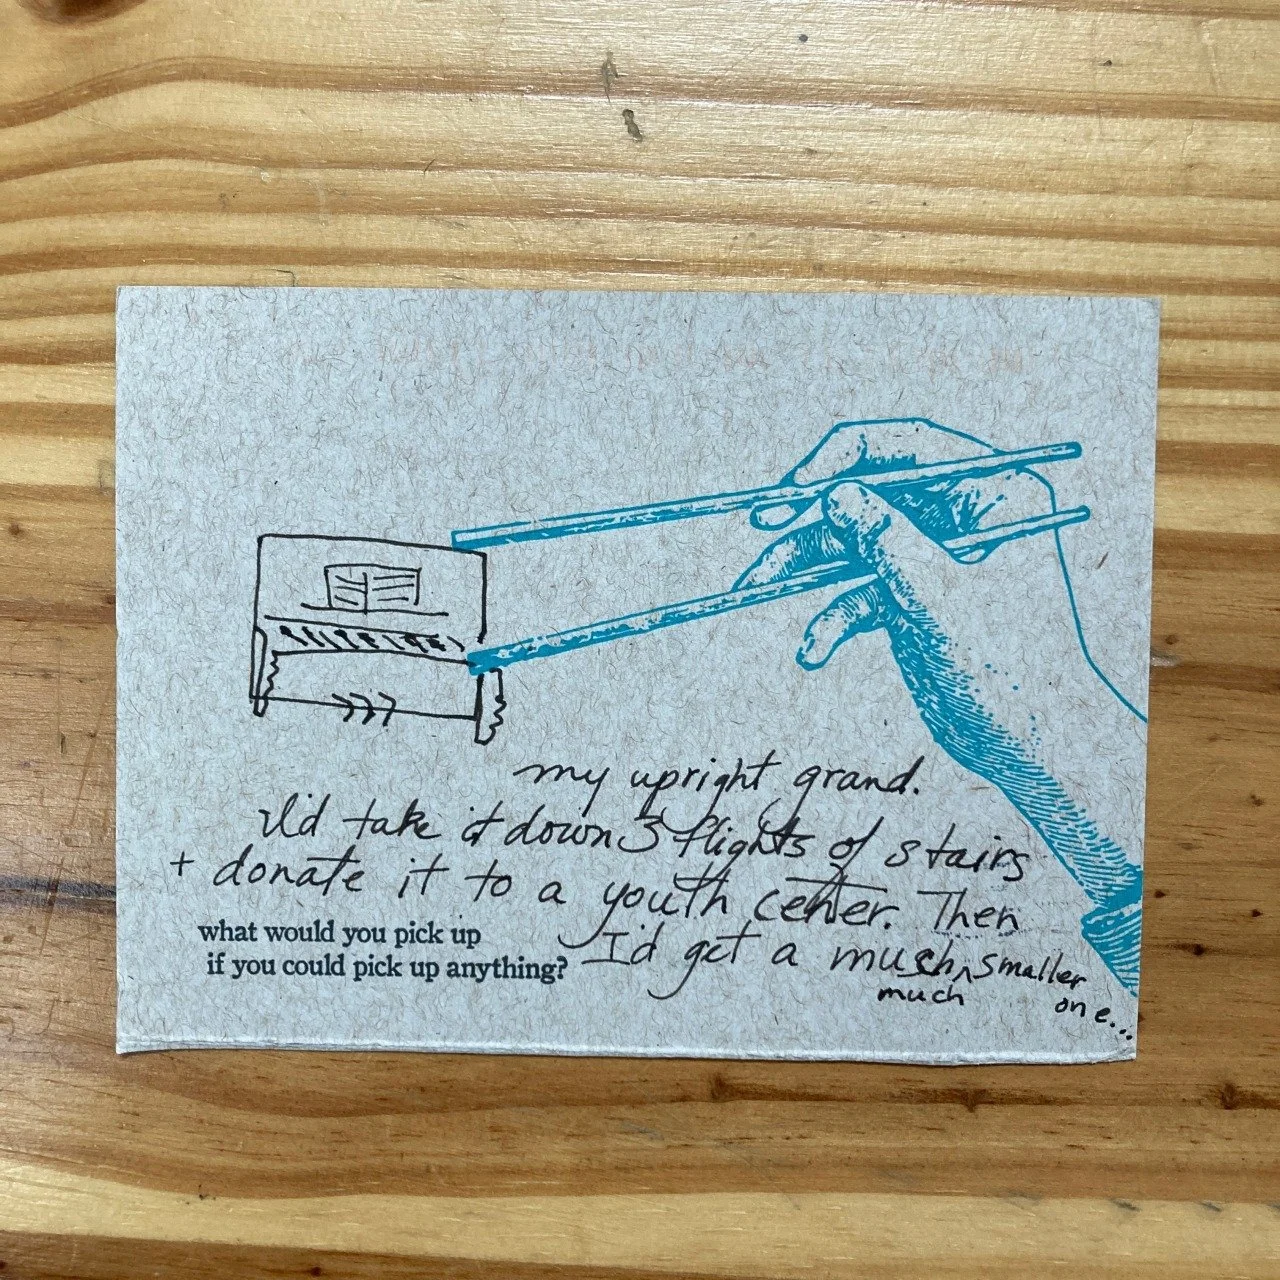 my upright grand.
I'd take it down 3 flights of stairs
+ donate it to a youth center. Then
I'd get a much ^ smaller
much
one...
what would you pick up
if you could pick up anything?